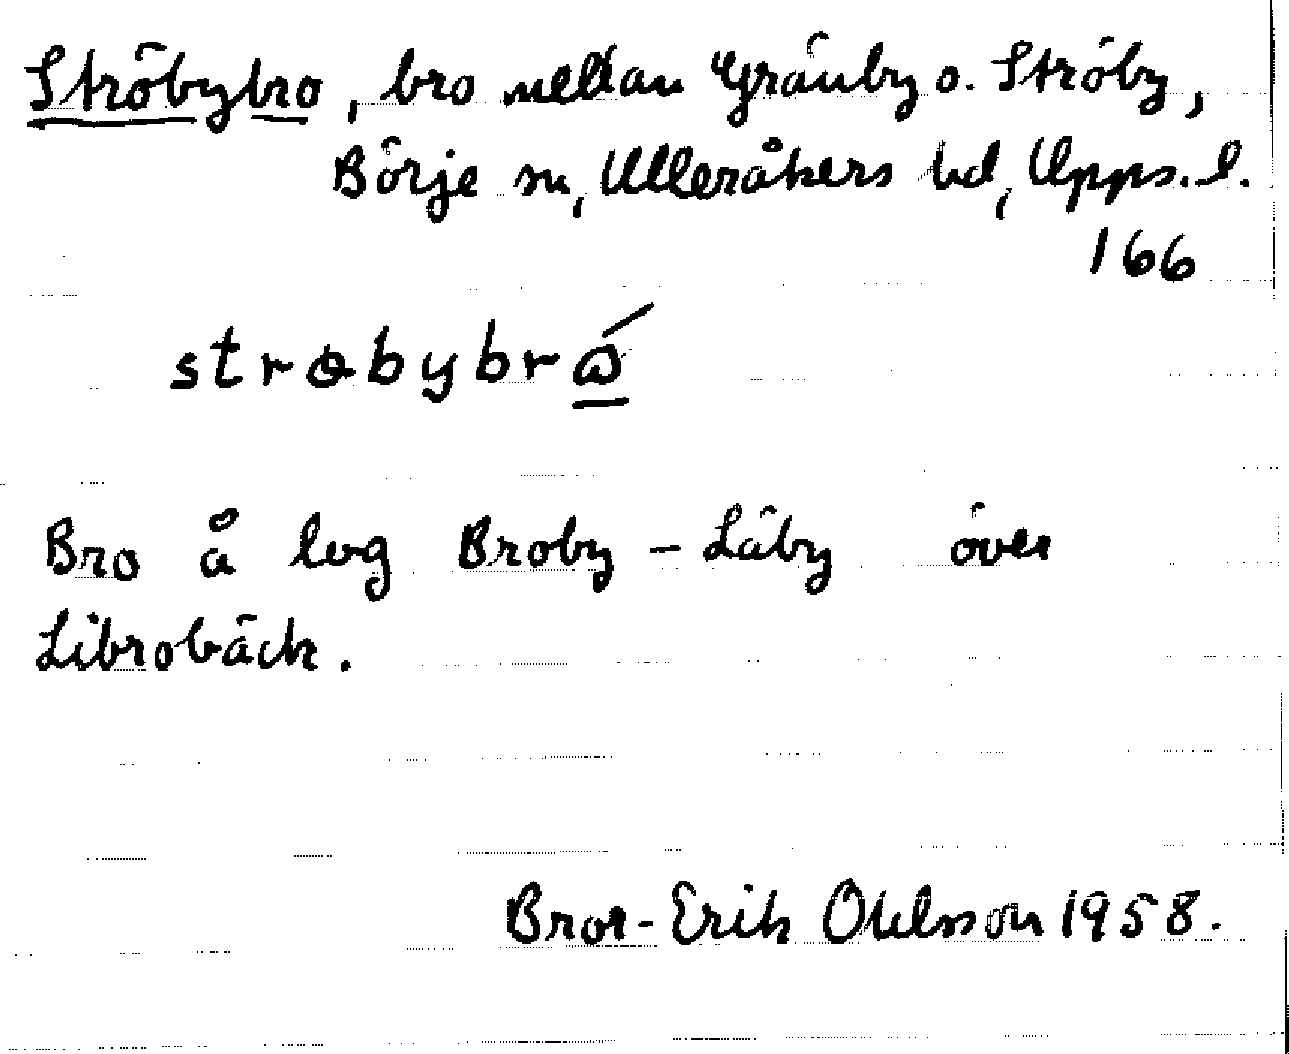 Ströbybro, bro mellan Gränby o. Ströby,
Börje sn, Ulleråkers hd, Upps. l.
166
strөbybrɷ́
Bro å lvg Broby – Läby över
Librobäck.
Bror-Erik Ohlsson 1958.